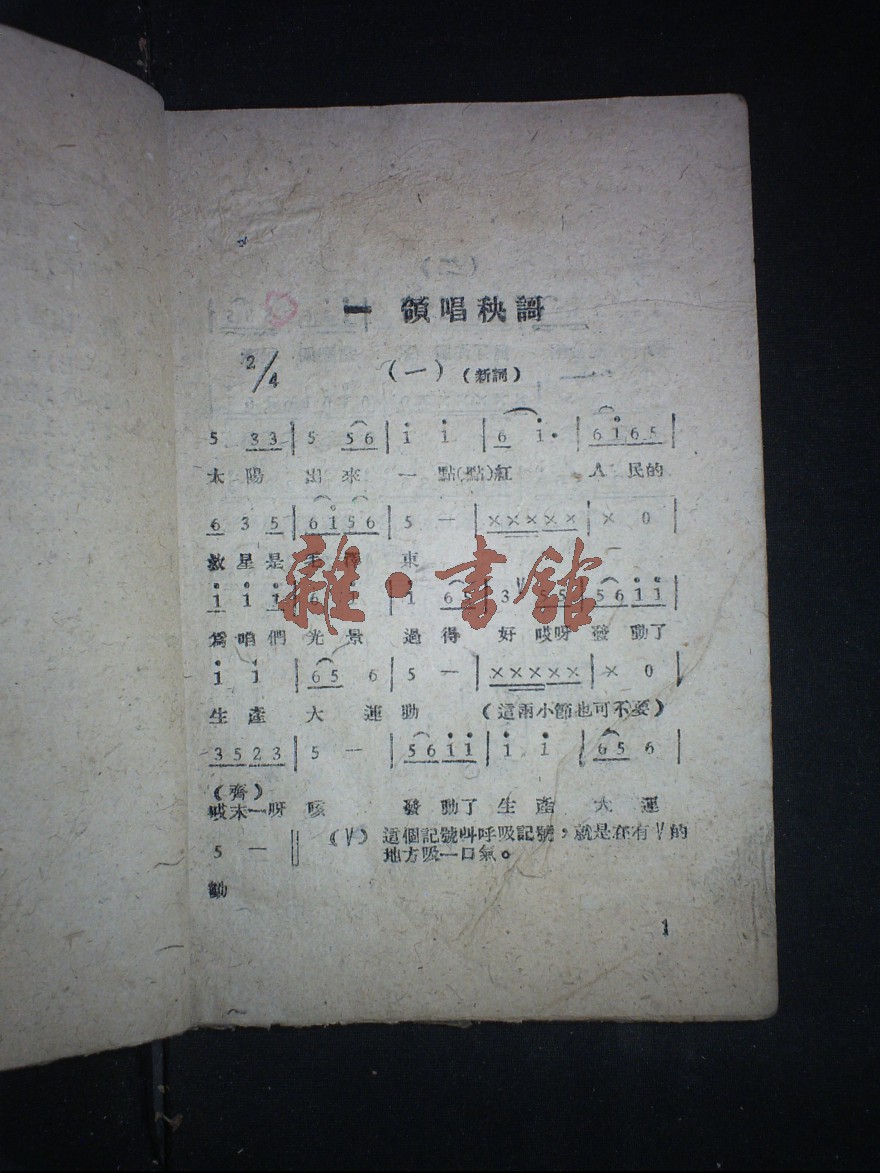 一 領唱秧謌
2/4 (一) (新詞)
5 33 | 5 56 | i i | 6 i· | 6i65 |
太陽 出來 一 點(點)紅 人 民的
6 3 5 | 6i56 | 5 — | ××××× | × 0 |
救星是毛 東
i i i | 6 | i 65 | 3 V 55 | 56ii |
爲咱們光景 過得 好哎呀發動了
i i | 65 6 | 5 — | ××××× | × 0 |
生產大運動 (這兩小節也可不要)
3523 | 5 — | 56ii | i i | 65 6 |
(齊)
哎末一呀咳 發動了生產大運
5 — ‖ (V) 這個記號叫呼吸記號,就是在有V的
地方吸一口氣。
動
1
雜·書館